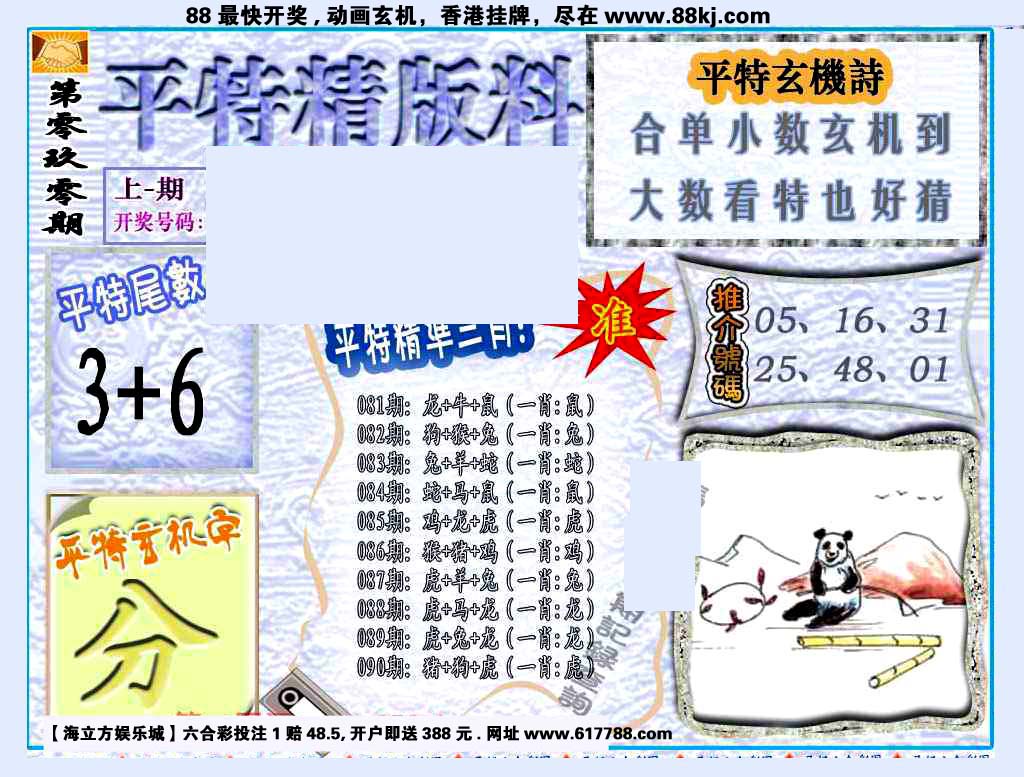 88 最快开奖 , 动画玄机，香港挂牌，尽在 www.88kj.com
第零玖零期
平特精版料
上-期
开奖号码:
平特玄機詩
合单小数玄机到
大数看特也好猜
平特尾數
3+6
平特精準三肖!
准
推介號碼
05、16、31
25、48、01
081期: 龙+牛+鼠 (一肖:鼠)
082期: 狗+猴+兔 (一肖:兔)
083期: 兔+羊+蛇 (一肖:蛇)
084期: 蛇+马+鼠 (一肖:鼠)
085期: 鸡+龙+虎 (一肖:虎)
086期: 猴+猪+鸡 (一肖:鸡)
087期: 虎+羊+兔 (一肖:兔)
088期: 虎+马+龙 (一肖:龙)
089期: 虎+兔+龙 (一肖:龙)
090期: 猪+狗+虎 (一肖:虎)
平特玄机字
分
記錄查詢
【海立方娱乐城】六合彩投注 1 赔 48.5, 开户即送 388 元 . 网址 www.617788.com